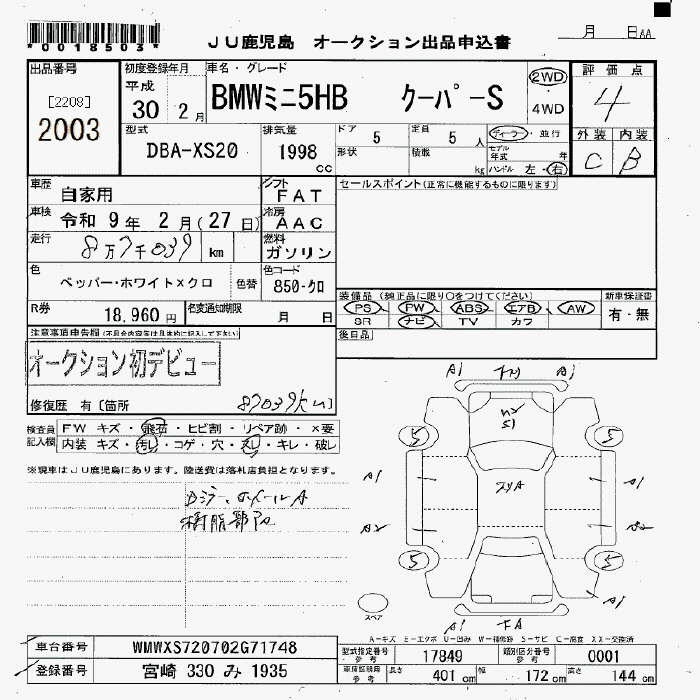 *0018503*
JU鹿児島 オークション出品申込書
月 日AA
出品番号
[2208]
2003
初度登録年月
平成
30 2月
車名・グレード
BMWミニ5HB クーパーS
2WD
4WD
評価点
4
外装 内装
C B
型式
DBA-XS20
排気量
1998
cc
ドア 5 定員 5人
形状 積載 kg
ディーラー・並行
モデル年式 年
ハンドル 左・右
車歴
自家用
シフト
FAT
車検
令和 9年 2月(27日)
冷房
AAC
走行
8万7千039 km
燃料
ガソリン
色
ペッパー・ホワイト×クロ
色替
色コード
850-クロ
R券
18,960円
名変通知期限
月 日
セールスポイント(正常に機能するものに限ります)
装備品(純正品に限り○をつけてください)
PS PW ABS エアB AW
SR ナビ TV カワ
新車保証書
有・無
後日品
注意事項申告欄(不具合内容等は具体的に記入して下さい)
オークション初デビュー
修復歴 有[箇所
87039km]
検査員記入欄
FW キズ・飛石・ヒビ割・リペア跡・×要
内装 キズ・汚レ・コゲ・穴・スレ・キレ・破レ
※現車はJU鹿児島にあります。陸送費は落札店負担となります。
Dミラー、ホイールA
樹脂部
A1 A1
5 5
A1 A1
A2
5 5
スペア
A1
A-キズ E-エクボ U-凹み W-補修跡 S-サビ C-腐食 XX-交換済
車台番号 WMWXS720702G71748
登録番号 宮崎 330 み 1935
型式指定番号 参考 17849
類別区分番号 参考 0001
車検証記載 参考
長さ 401cm 幅 172cm 高さ 144cm